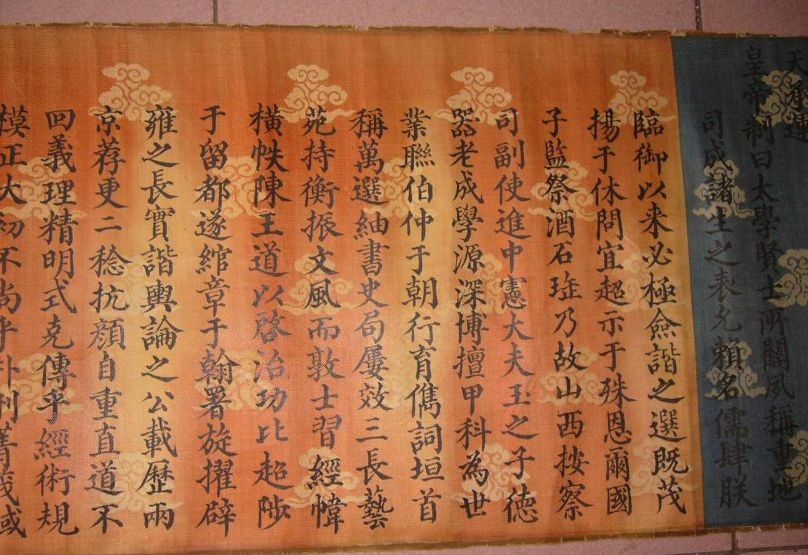 皇帝制曰太學賢士所關夙稱重地
司成諸生之表允賴名儒肆朕
臨御以来必極僉諧之選既茂
揚于休問宜超示于殊恩爾國
子監祭酒石珤乃故山西按察
司副使進中憲大夫玉之子德
器老成學源深博擅甲科為世
業聯伯仲于朝行育儁詞垣首
稱萬選紬書史局屢效三長藝
苑持衡振文風而敦士習經幃
橫帙陳王道以啓治功比超陟
于留都遂綰章于翰署旋擢辟
雍之長實諧輿論之公載歷兩
京荐更二稔抗顔自重直道不
回義理精明式克傳乎經術規
模正大初不尚乎